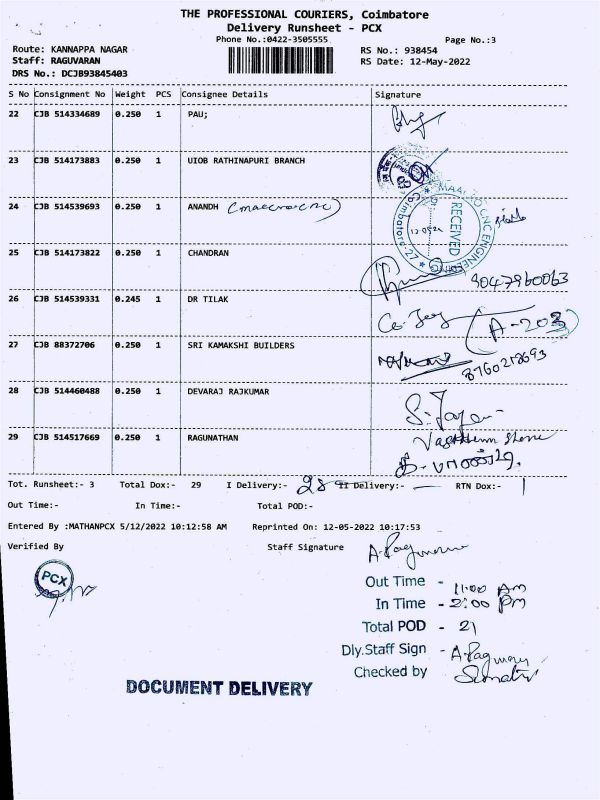 THE PROFESSIONAL COURIERS, Coimbatore
Delivery Runsheet - PCX
Phone No.:0422-3505555
Page No.:3
Route: KANNAPPA NAGAR
RS No.: 938454
Staff: RAGUVARAN
RS Date: 12-May-2022
DRS No.: DCJB93845403
S No Consignment No Weight PCS Consignee Details Signature
22 CJB 514334689 0.250 1 PAU;
23 CJB 514173883 0.250 1 UIOB RATHINAPURI BRANCH
24 CJB 514539693 0.250 1 ANANDH
RECEIVED
Coimbatore-27
25 CJB 514173822 0.250 1 CHANDRAN
9047960063
26 CJB 514539331 0.245 1 DR TILAK
A-203
27 CJB 88372706 0.250 1 SRI KAMAKSHI BUILDERS
8760218693
28 CJB 514460488 0.250 1 DEVARAJ RAJKUMAR
29 CJB 514517669 0.250 1 RAGUNATHAN
Tot. Runsheet:- 3 Total Dox:- 29 I Delivery:- 28 II Delivery:- — RTN Dox:- 1
Out Time:- In Time:- Total POD:-
Entered By :MATHANPCX 5/12/2022 10:12:58 AM Reprinted On: 12-05-2022 10:17:53
Verified By Staff Signature
PCX
Out Time - 11:00 Am
In Time - 2:00 Pm
Total POD - 21
Dly.Staff Sign -
Checked by
DOCUMENT DELIVERY